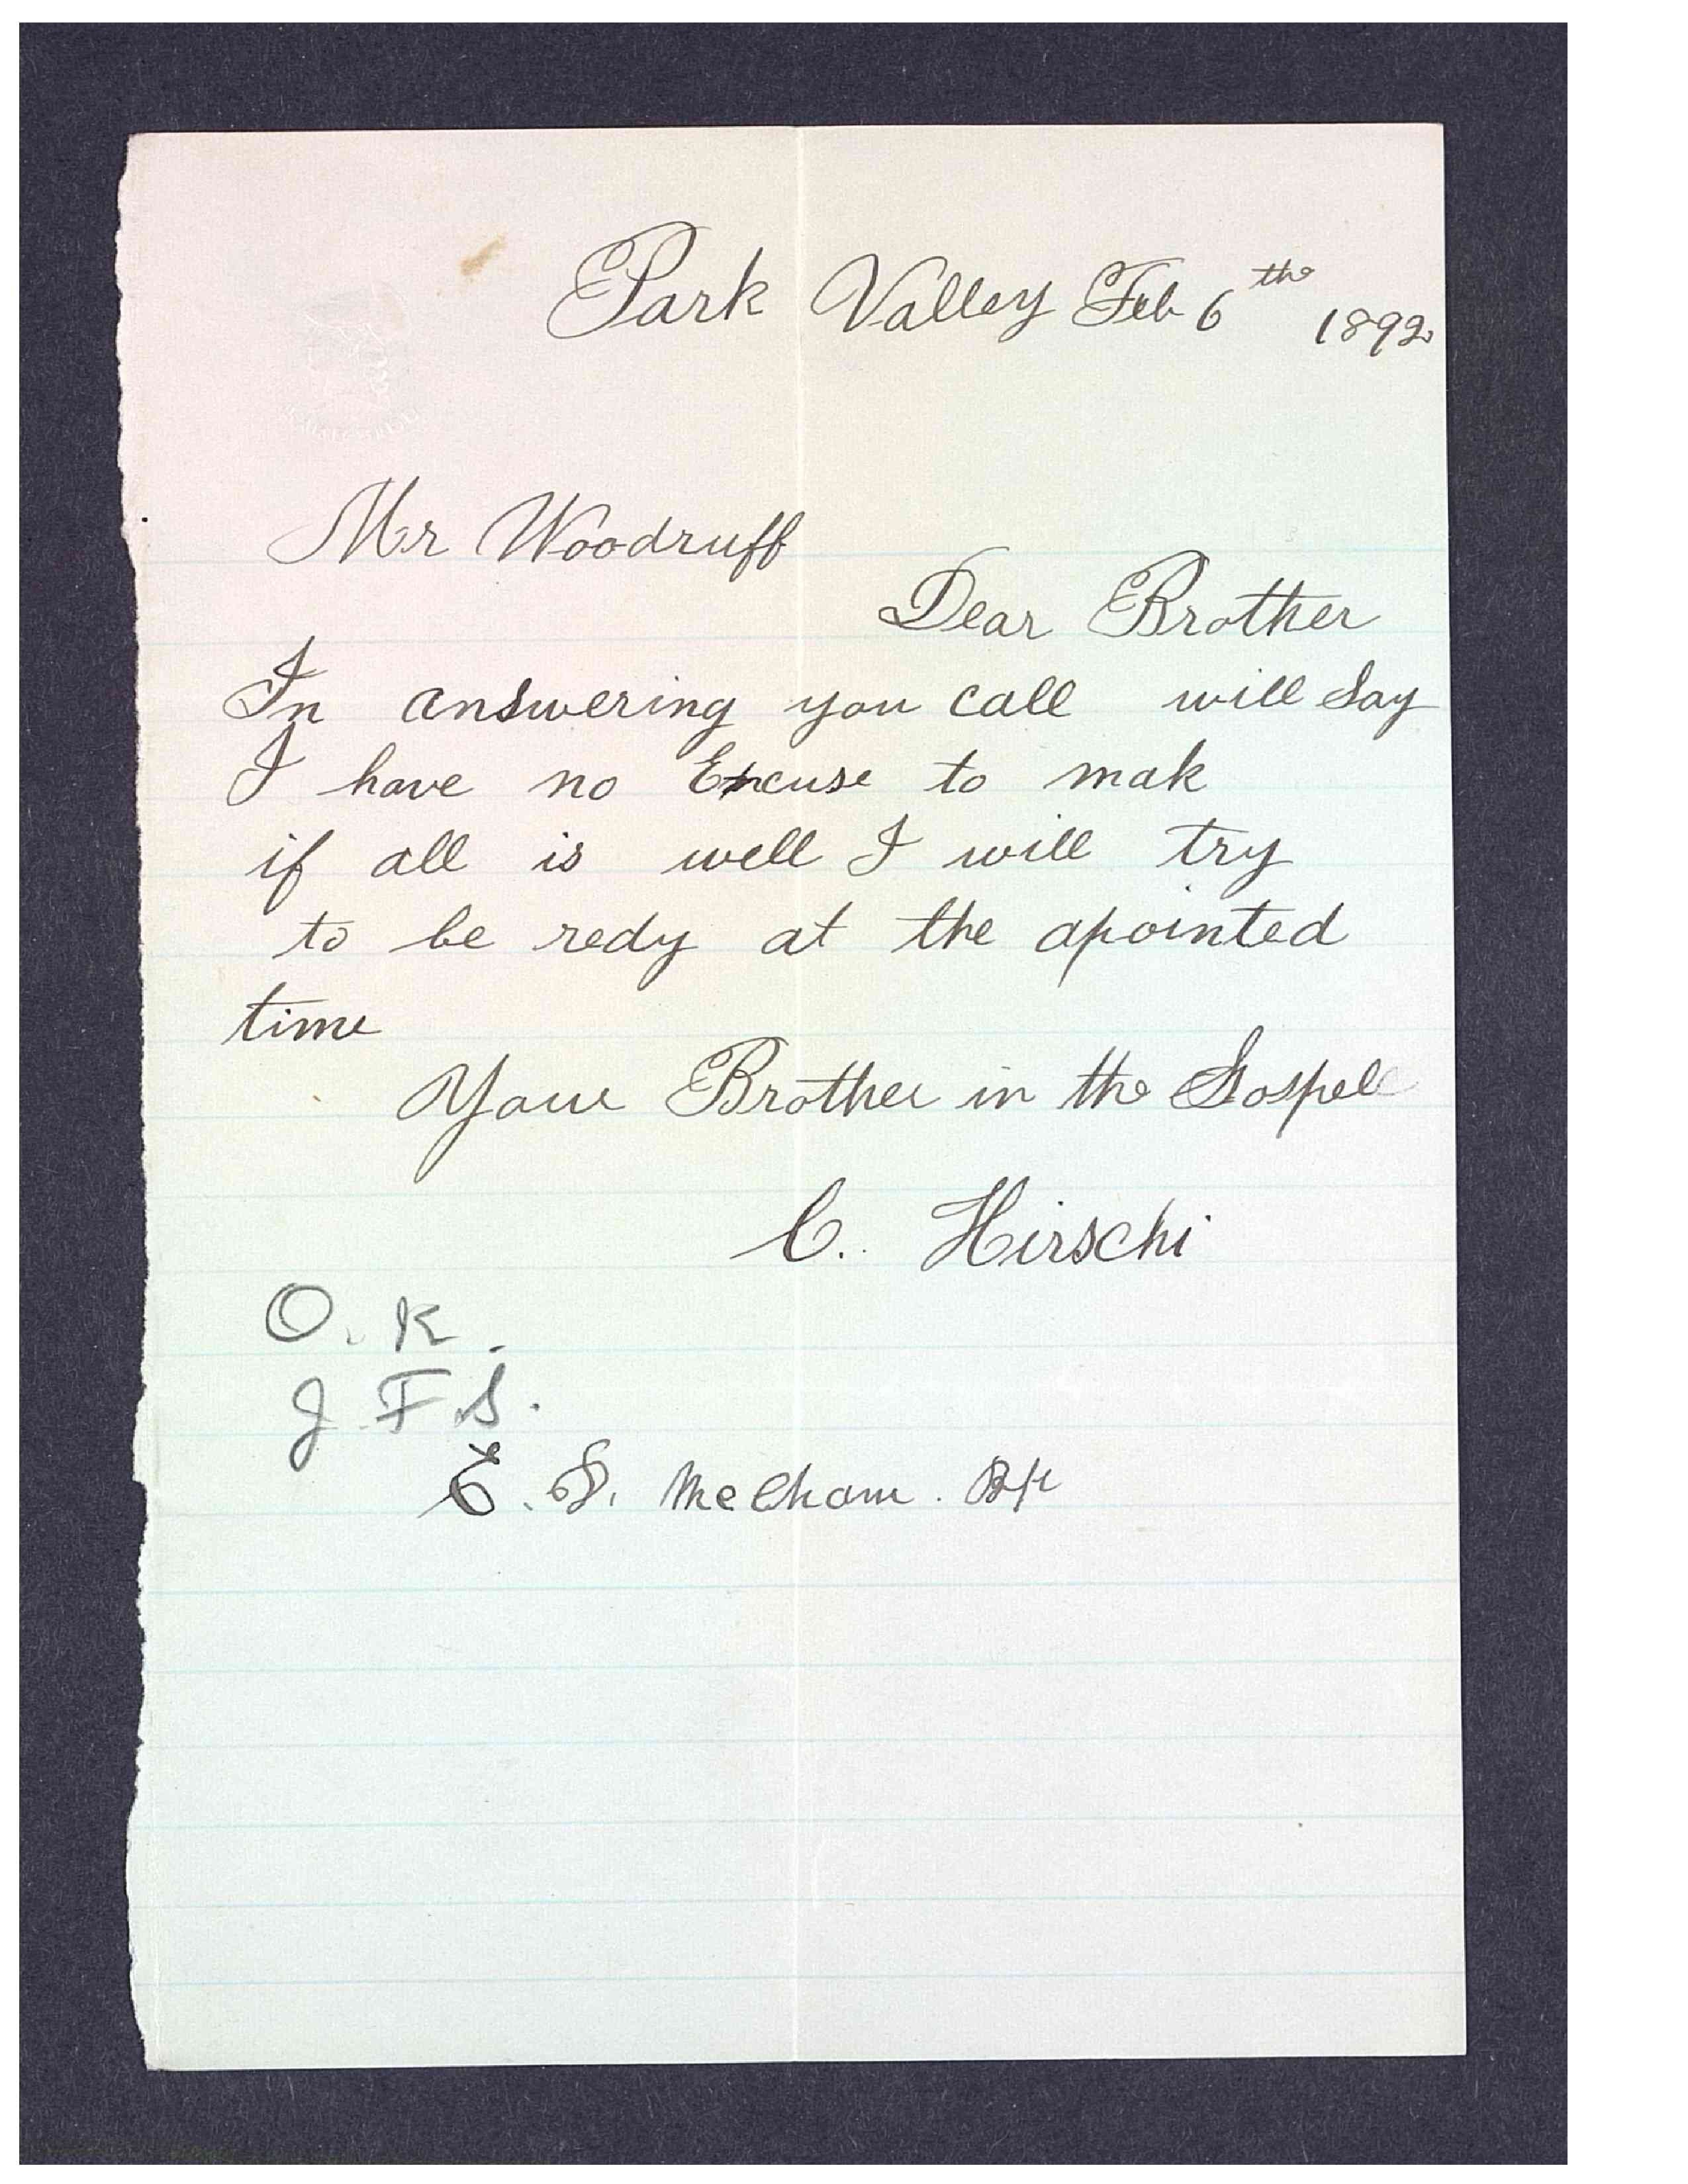 Park Valley Feb 6th 1892
Mr Woodruff
Dear Brother
In answering you call will Say
I have no Excuse to mak
if all is well I will try
to be redy at the apointed
time
Your Brother in the Gospel
C. Hirschi
O. K.
J F S.
E. D. Mecham. Bp